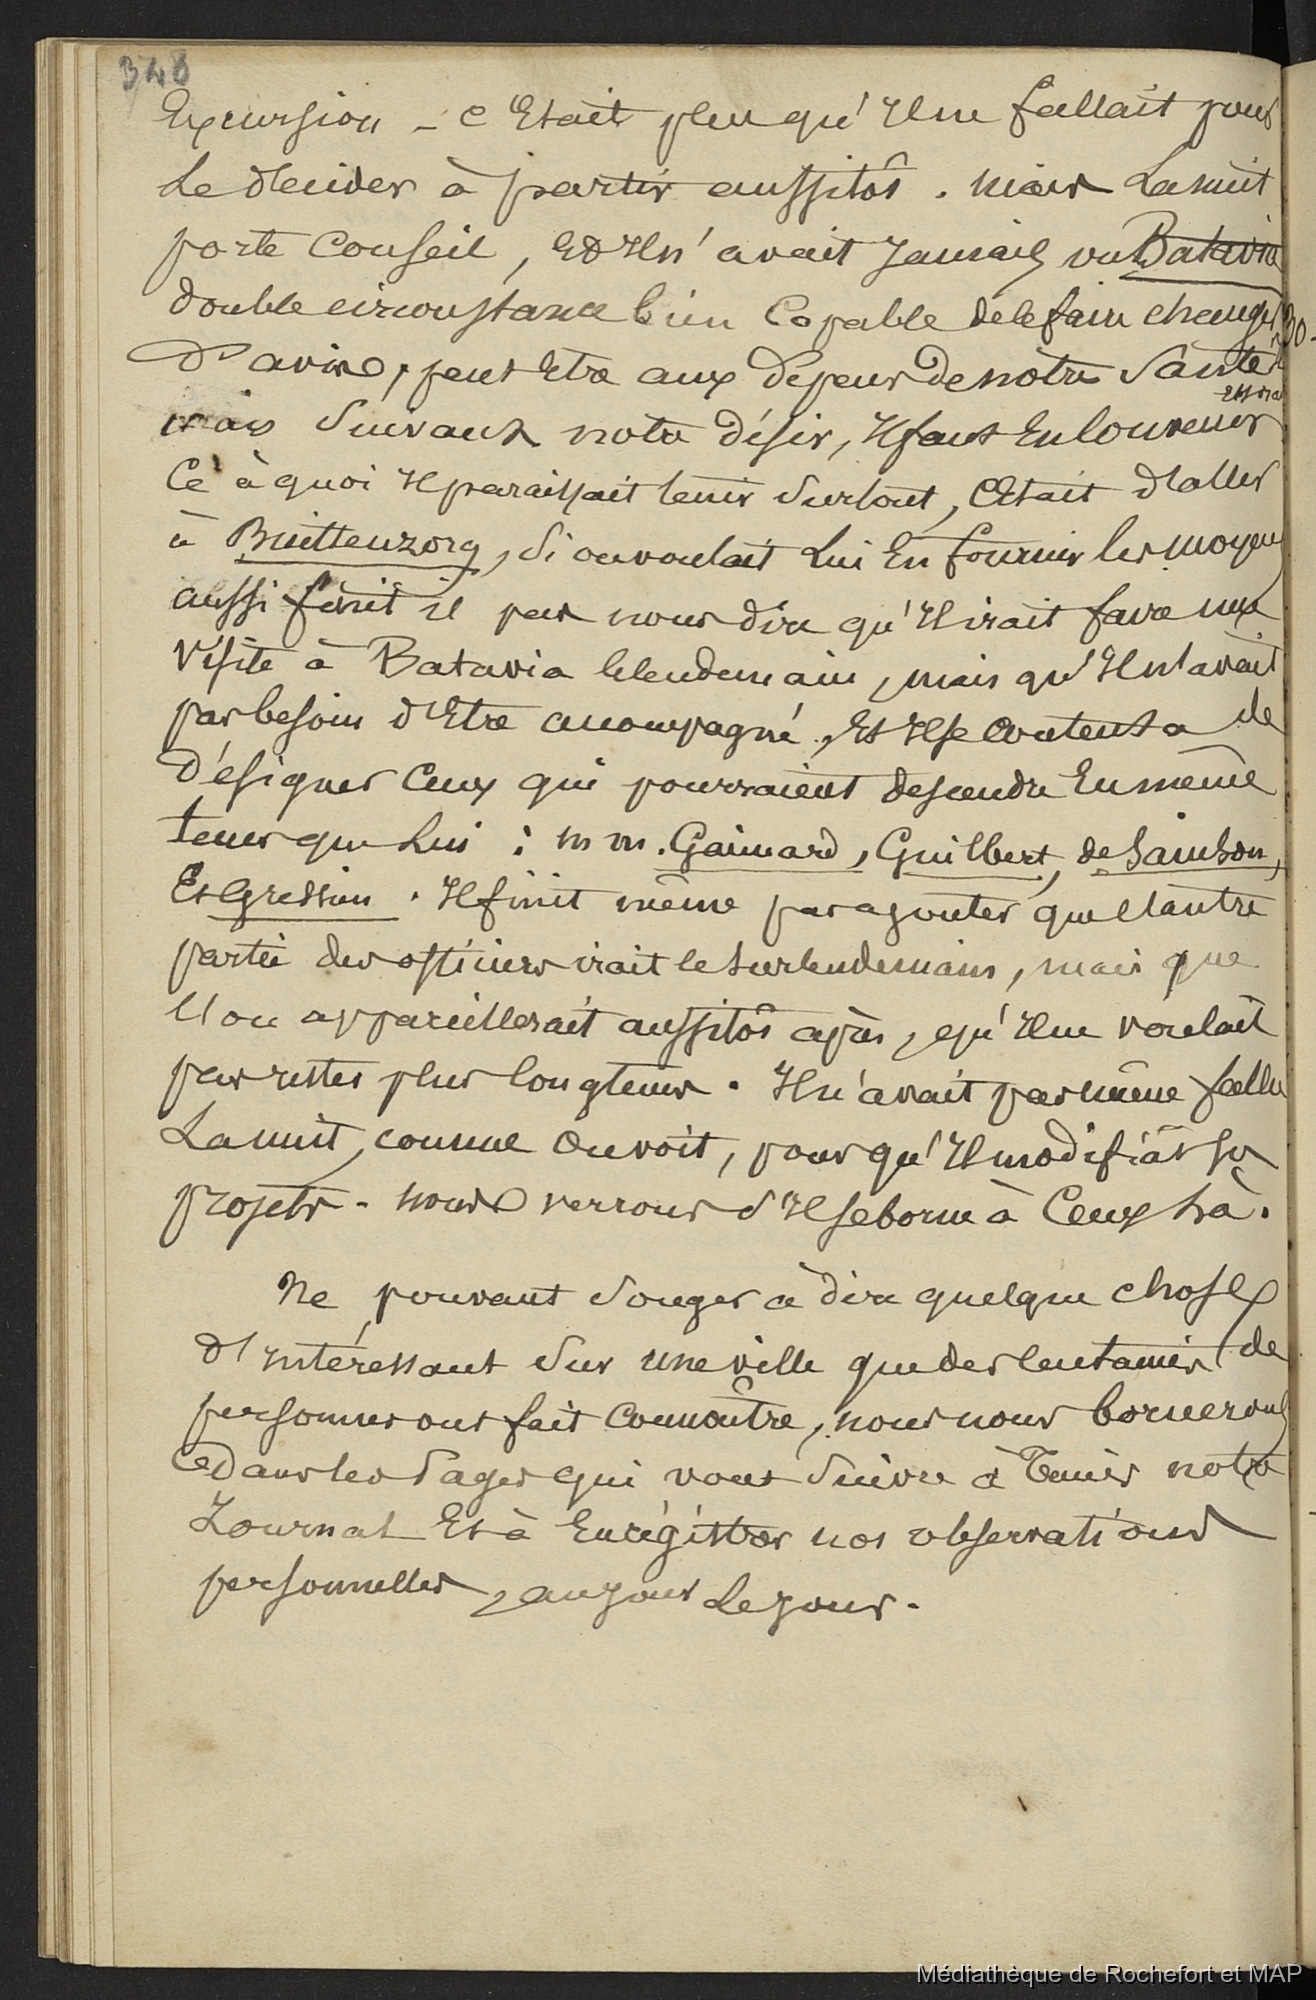 348
Excursion - c'Etait plus qu'Il ne fallait pour
Le décider à partir aussitôt. Mais La nuit
porte Conseil, Et Il n'avait Jamais vu Batavia
double circonstance bien Capable de le faire changer
d'avis, peut Etre aux dépens de notre Santé
mais Suivant notre désir, Il faut En Convenir
Ce à quoi Il paraissait tenir Surtout, C'Etait d'aller
à Buittenzorg, Si on voulait Lui En fournir les moyens
aussi finit il par nous dire qu'Il irait faire une
Visite à Batavia le lendemain, mais qu'Il n'avait
pas besoin d'Etre accompagné, Et Il se Contenta de
désigner Ceux qui pourraient descendre En même
tems que Lui : m m. Gaimard, Guilbert, de Sainson,
Et Gressien. Il finit même par ajouter que l'autre
partie des officiers irait le surlendemain, mais que
l'on appareillerait aussitôt après, qu'Il ne voulait
pas rester plus longtems. Il n'avait pas même fallu
La nuit, comme On voit, pour qu'Il modifiât ses
projets. Nous verrons s'Il se borne à Ceux là.
Ne pouvant Songer à dire quelque chose
d'intéressant Sur une ville que des centaines de
personnes ont fait Connoître, nous nous bornerons
dans les Pages qui vont Suivre à Tenir notre
Journal Et à Enrégistrer nos observations
personnelles, au jour Le jour.
Médiathèque de Rochefort et MAP